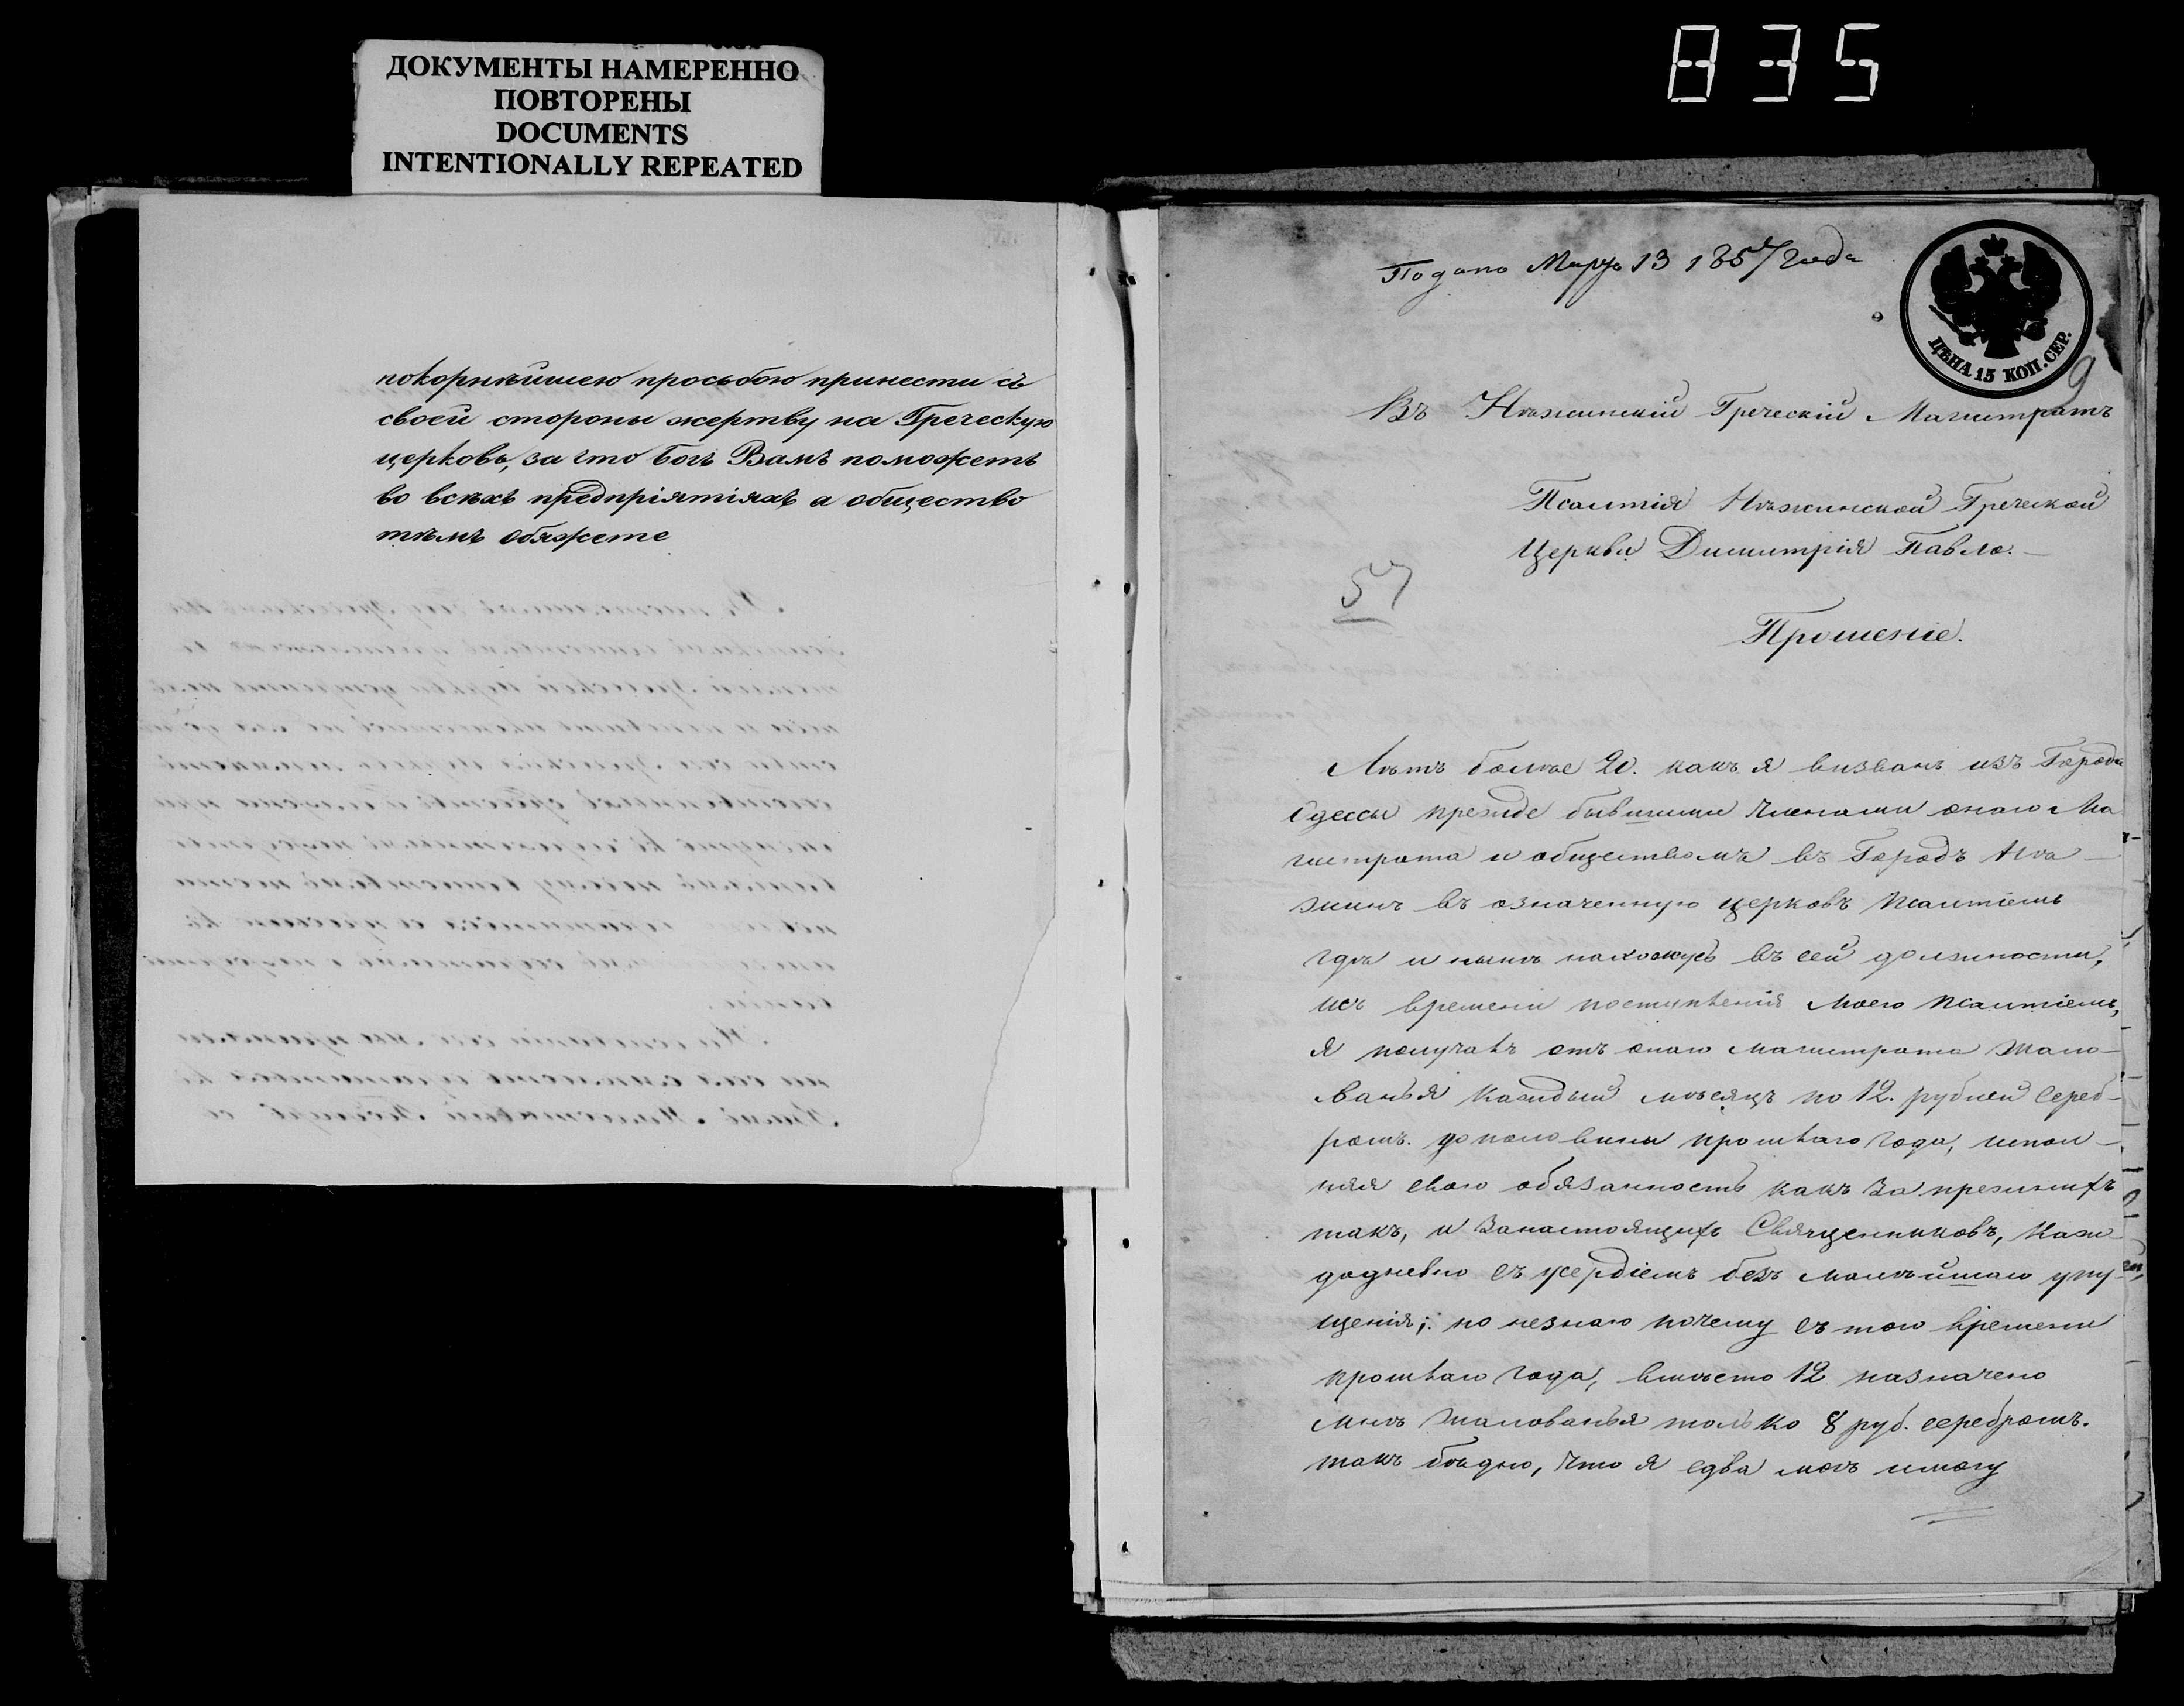 ДОКУМЕНТЫ НАМЕРЕННО
ПОВТОРЕНЫ
DOCUMENTS
INTENTIONALLY REPEATED
835
покорнѣйшею просьбою принести съ
своей стороны жертву на Греческую
церковь, за что богъ Вамъ поможетъ
во всѣхъ предпріятіяхъ а общество
тѣмъ обяжете
Подано Марта 13 1857 года
ЦѢНА 15 КОП. СЕР.
9
Въ Нѣжинскій Греческій Магистратъ
Псалтія Нѣжинской Греческой
Церкви Димитрія Павло.
57
Прошеніе.
Лѣтъ болѣе 20. какъ я визванъ изъ Города
Одессы прежде бывшими членами онаго Ма
гистрата и обществомъ въ Городъ Нѣ-
жинъ въ означенную церковъ псалтіемъ
гдѣ и нынѣ нахожусъ въ сей должности,
исъ времени поступленія моего псалтіемъ,
я получалъ отъ онаго магистрата жало-
ванья каждый мѣсяцъ по 12. рублей Сереб-
ромъ. до половины прошлаго года, испол-
няя свою обязанность какъ за прежнихъ
такъ, и занастоящихъ Священниковъ, каж
додневно съ усердіемъ безъ малѣйшаго упу-
щенія; но незнаю почему съ того времени
прошлаго года, вмѣсто 12 назначено
мнѣ жалованья только 8 руб. серебромъ.
такъ бѣдно, что я едва могъ имогу